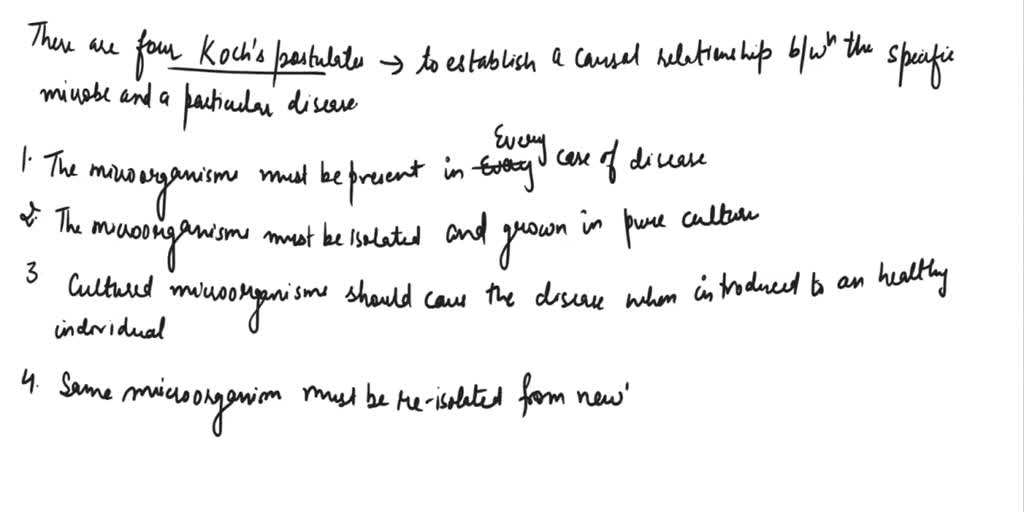 There are four Koch's postulates → to establish a causal relationship b/wn the specific
microbe and a particular disease
1. The microorganisms must be present in Every case of disease
2. The microorganisms must be isolated and grown in pure culture
3 Cultured microorganisms should cause the disease when introduced to an healthy
individual
4. Same microorganism must be re-isolated from new